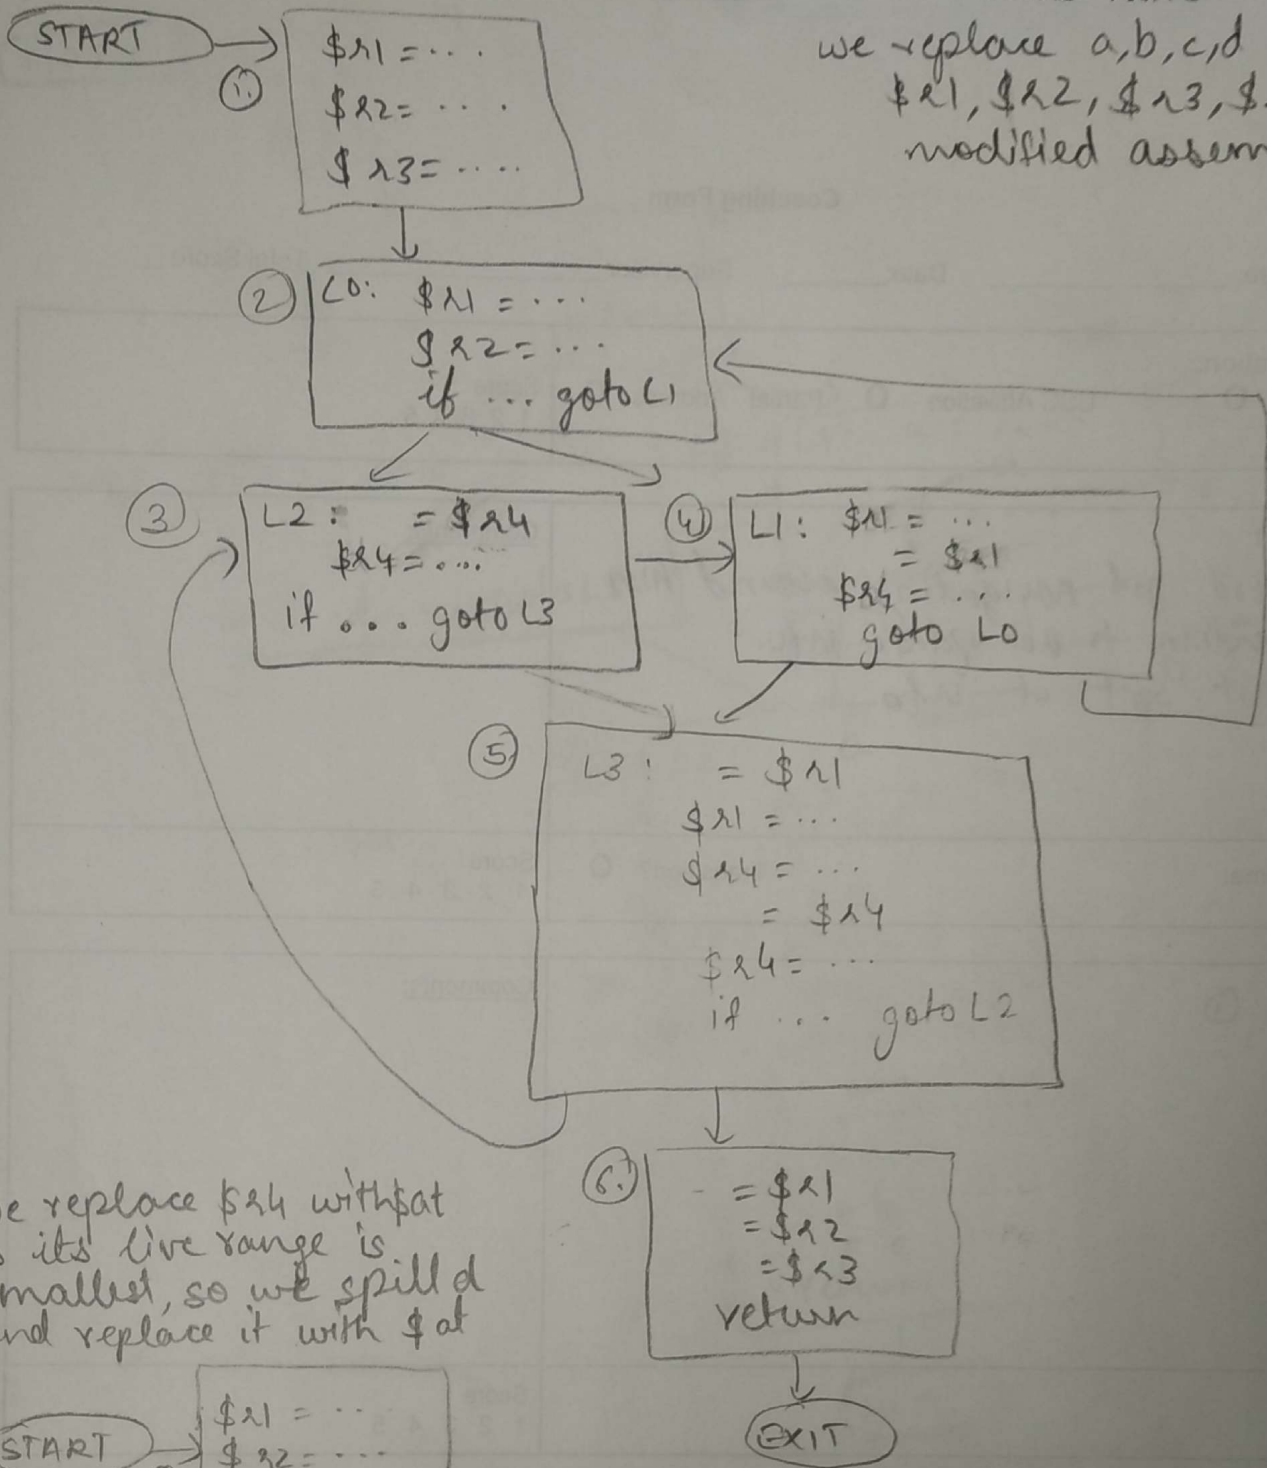 START
①
$r1 = ...
$r2 = ....
$r3 = ....
we replace a,b,c,d
$r1, $r2, $r3, $
modified assem
②
L0: $r1 = ...
$r2 = ...
if ... goto L1
③
L2: = $r4
$r4 = ....
if ... goto L3
④
L1: $r1 = ...
= $r1
$r4 = ....
goto L0
⑤
L3: = $r1
$r1 = ...
$r4 = ...
= $r4
$r4 = ...
if ... goto L2
⑥
= $r1
= $r2
= $r3
return
EXIT
e replace $r4 with $at
its live range is
mallest, so we spill d
nd replace it with $at
START
$r1 = ..
$r2 = ...